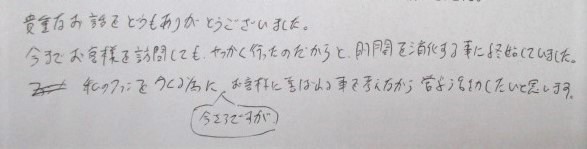 貴重なお話をどうもありがとうございました。
今までお客様を訪問しても、せっかく行ったのだからと、時間を消化する事に終始していました。
私のファンをつくる為に、お客様に喜ばれる事を考え方から営業活動したいと思います。
今さらですが